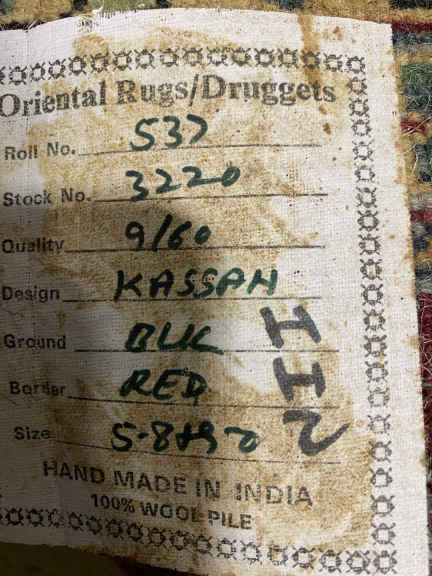 Oriental Rugs/Druggets
Roll No. 537
Stock No. 3220
Quality 9/60
Design KASSAN
Ground BLK
Border RED
Size
HAND MADE IN INDIA
100% WOOL PILE